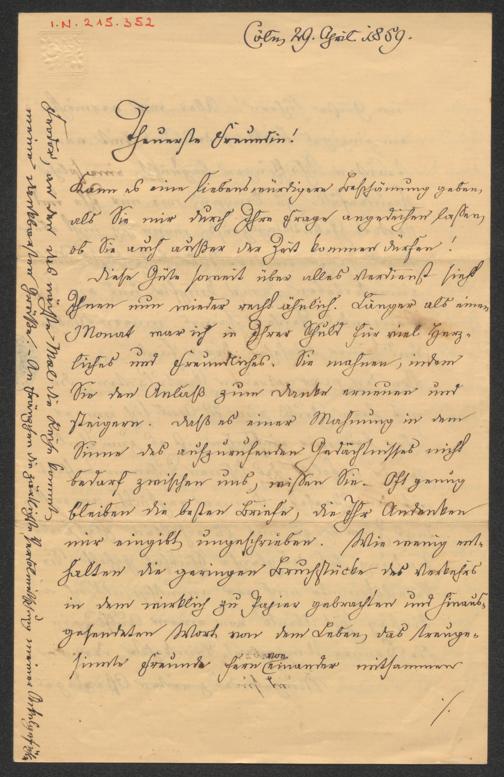 I.N. 215.352
Cöln, 29. April 1859.
Theuerste Freundin!
Kann es eine liebenswürdigere Beschämung geben,
als Sie mir durch Ihre Frage angedeihen lassen,
ob Sie auch außer der Zeit kommen dürfen!
Diese Güte soweit über alles Verdienst sieht
Ihnen nun wieder recht ähnlich. Länger als einen
Monat war ich in Ihrer Schuld für viel Herz-
liches und Freundliches. Sie mahnen, indem
Sie den Anlaß zum Danke erneuen und
steigern. Daß es einer Mahnung in dem
Sinne des aufzurufenden Gedächtnisses nicht
bedarf zwischen uns, wissen Sie. Oft genug
bleiben die besten Briefe, die Ihr Andenken
mir eingibt ungeschrieben. Wie wenig ent-
halten die geringen Bruchstücke des Verkehrs
in dem wirklich zu Papier gebrachten und hinaus-
gesendeten Wort von dem Leben, das treuge-
sinnte Freunde fern von einander mitsammen
./.
an den das nächste Mal die Reihe kommt,
meine dankbarsten Grüße. - An die